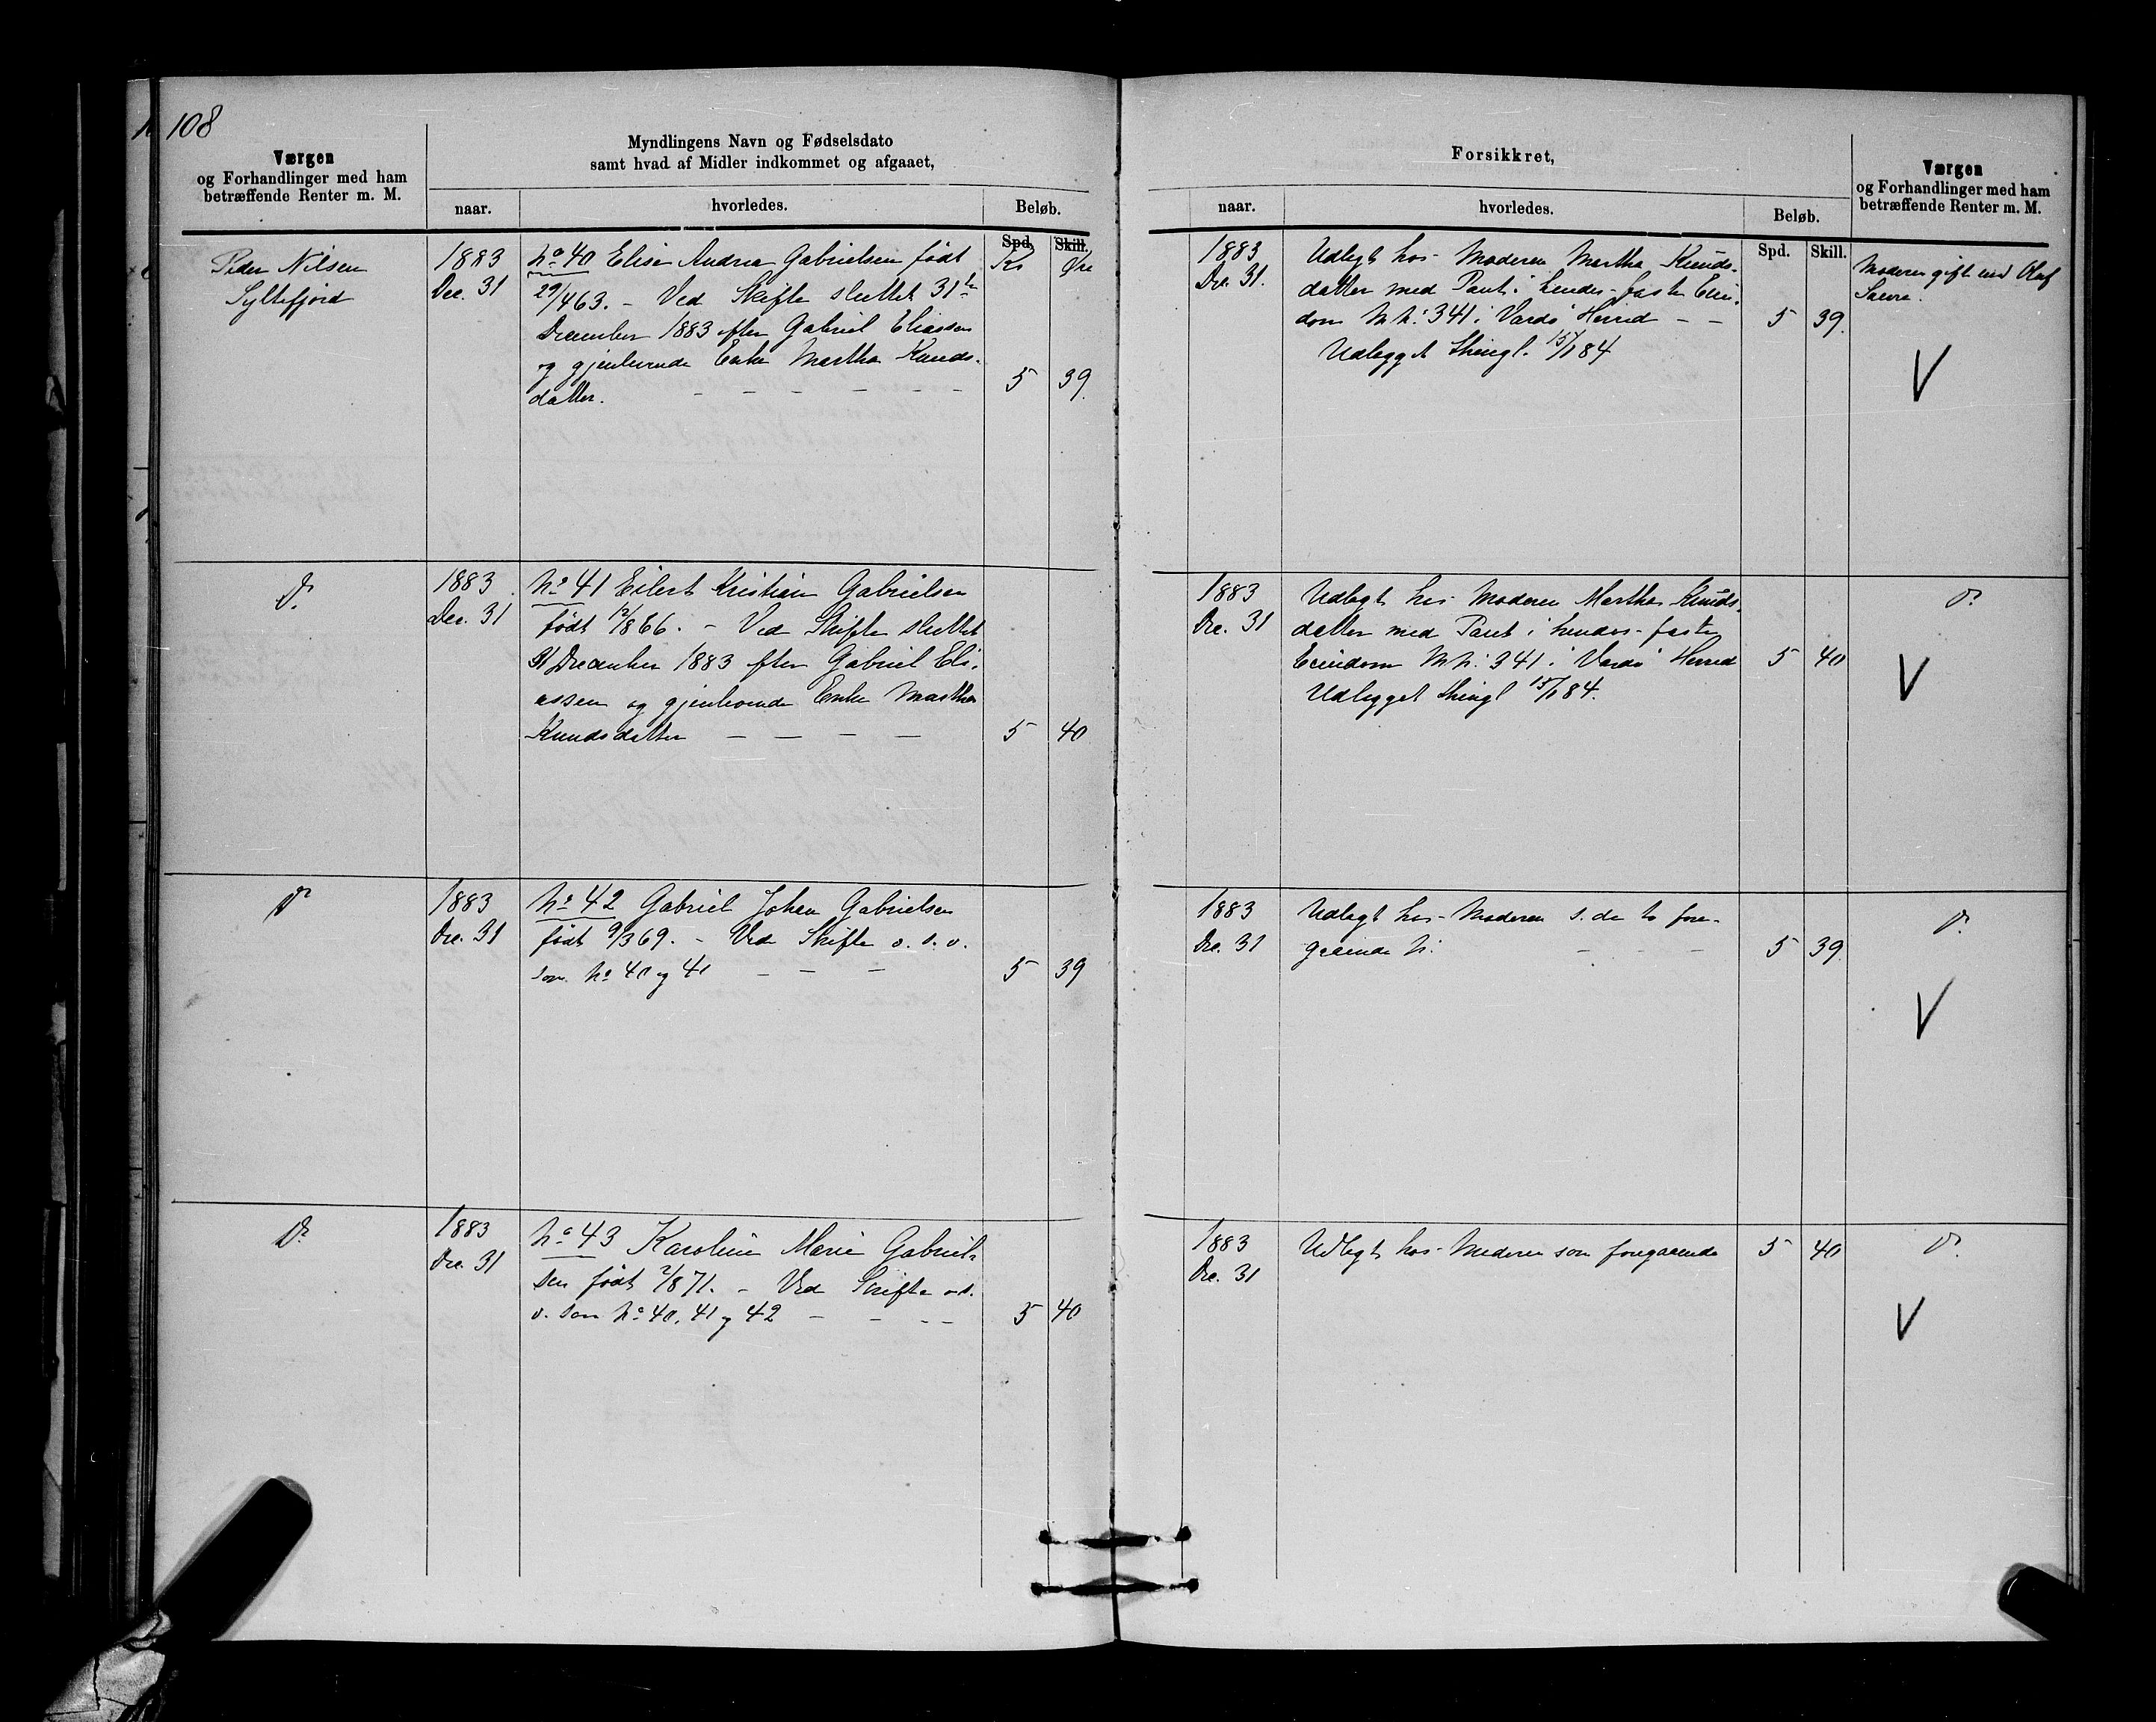 108
Værgen
og Forhandlinger med ham
betræffende Renter m. M.
Myndlingens Navn og Fødselsdato
samt hvad af Midler indkommet og afgaaet,
naar.
hvorledes.
Beløb.
Spd.
Skill.
Kr
Øre
Peder Nilsen
Syltefjord
1883
Dec. 31
No 40 Elise Andrea Gabrielsen født
29/4 63. - Ved Skifte sluttet 31te
December 1883 efter Gabriel Eliassen
og gjenlevende Enke Martha Knuds-
datter. - - - - - 5 39.
Do
1883
Dec. 31
No 41 Eilert Kristian Gabrielsen
født 12/8 66. - Ved Skifte sluttet
31 December 1883 efter Gabriel Eli-
assen og gjenlevende Enke Martha
Knudsdatter - - - - 5 40
Do
1883
Dec. 31
No 42 Gabriel Johan Gabrielsen
født 9/3 69. - Ved Skifte o. s. v.
som No 40 og 41 - - - 5 39
Do
1883
Dec. 31
No 43 Karoline Marie Gabriel-
sen født 2/8 71. - Ved Skifte o s.
v. som No 40, 41 og 42 - - - - 5 40
Forsikkret,
naar.
hvorledes.
Beløb.
Spd.
Skill.
Værgen
og Forhandlinger med ham
betræffende Renter m. M.
1883
Dec. 31.
Udlagt hos Moderen Martha Knuds-
datter med Pant i hendes faste Eien-
dom M No 341 i Vardø Herred - - 5 39.
Udlægget thingl. 15/1 84
Moderen gift med Oluf
V
1883
Dec. 31
Udlagt hos Moderen Martha Knuds-
datter med Pant i hendes faste
Eiendom M No 341 i Vardø Herred 5 40
Udlægget thingl 15/1 84.
Do
V
1883
Dec. 31
Udlagt hos Moderen s. de to fore-
gaaende No - - - 5 39.
Do
V
1883
Dec. 31
Udlagt hos Moderen som foregaaende 5 40
Do
V